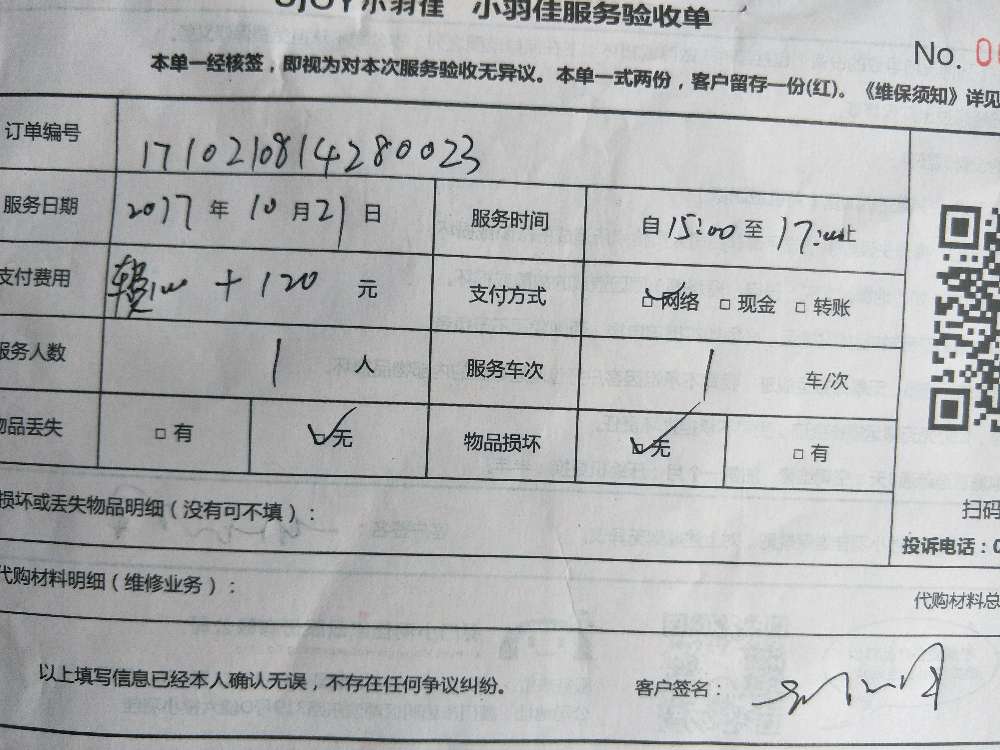 小羽佳 小羽佳服务验收单
No.
本单一经核签，即视为对本次服务验收无异议。本单一式两份，客户留存一份(红)。《维保须知》详见
订单编号 171021081428 0023
服务日期 2017 年 10 月 21 日 服务时间 自 15:00 至 17:00 止
支付费用 + 120 元 支付方式 ☑网络 □现金 □转账
服务人数 1 人 服务车次 1 车/次
物品丢失 □有 ☑无 物品损坏 ☑无 □有
损坏或丢失物品明细（没有可不填）：
扫码
投诉电话：0
代购材料明细（维修业务）：
代购材料总
以上填写信息已经本人确认无误，不存在任何争议纠纷。 客户签名：